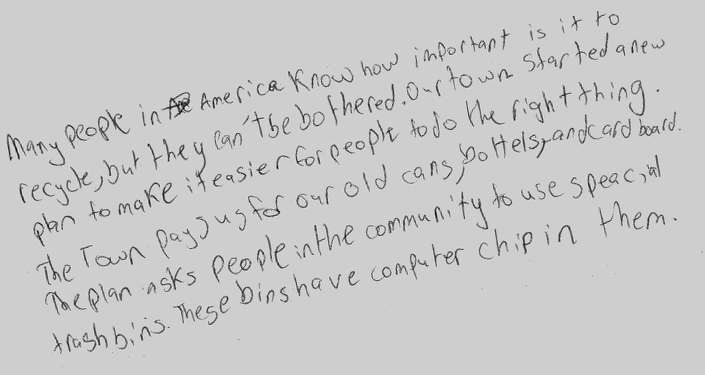 Many people in America know how important is it to
recycle, but they can't be bothered. Our town started a new
plan to make it easier for people to do the right thing.
The Town pays us for our old cans, bottels, and card board.
The plan asks people in the community to use speacial
trash bins. These bins have computer chip in them.